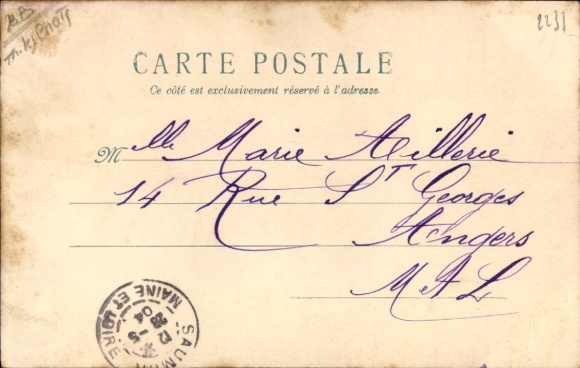 2231
CARTE POSTALE
Ce côté est exclusivement réservé à l'adresse.
Mlle Marie
14 Rue St Georges
Angers
M A L
SAUMUR
MAINE ET LOIRE
04